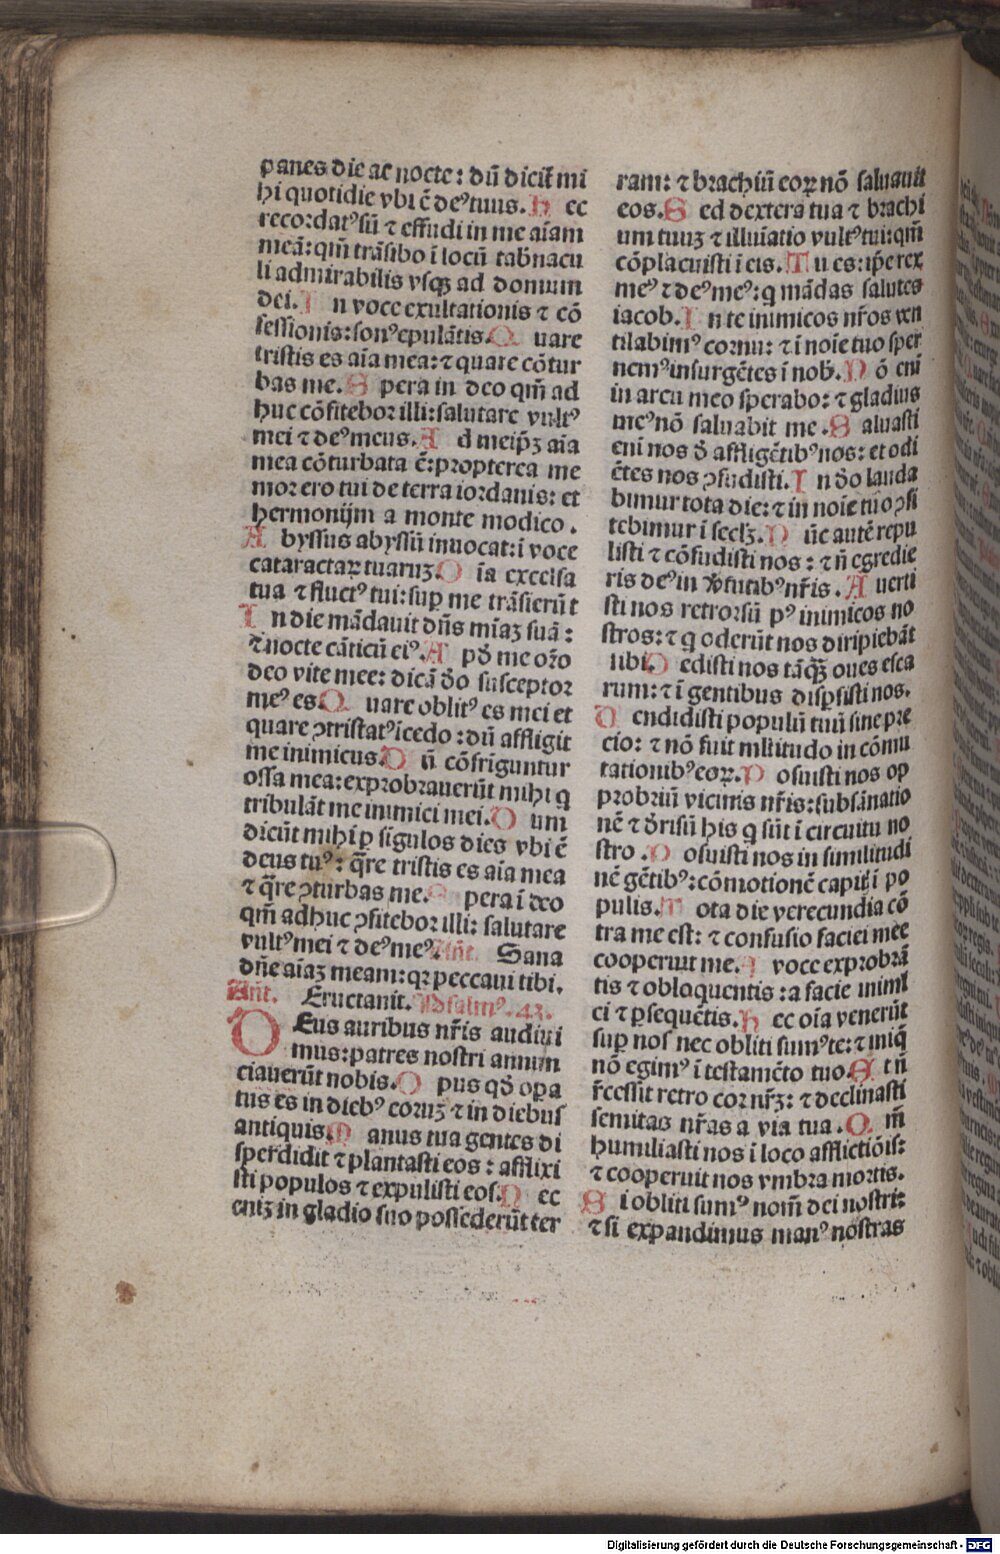 panes die ac nocte: dū dicit̄ mi
hi quotidie vbi ē de⁹ tuus. H ec
recordat⁹ sū ⁊ effudi in me aīam
meā: qm̄ trāsibo ī locū tab̄nacu
li admirabilis vsqꝫ ad domum
dei. I n voce exultationis ⁊ cō
fessionis: son⁹ epulātis. Q uare
tristis es aīa mea: ⁊ quare cōtur
bas me. S pera in deo qm̄ ad
huc cōfitebor illi: salutare vult⁹
mei ⁊ de⁹ meus. A d meip̄ꝫ aīa
mea cōturbata ē: propterea me
mor ero tui de terra iordanis: et
hermonijm a monte modico.
A byssus abyssū inuocat: ī voce
cataractaꝝ tuaruꝫ. O īa excelsa
tua ⁊ fluct⁹ tui: suꝑ me trāsierūt
I n die mādauit dn̄s mīaꝫ suā:
⁊ nocte cāticū ei⁹. A pđ me or̄o
deo vite mee: dicā đo susceptor
me⁹ es. Q uare oblit⁹ es mei et
quare ꝯtristat⁹ īcedo: dū affligit
me inimicus. D ū cōfriguntur
ossa mea: exprobrauerūt mihi q
tribulāt me inimici mei. D um
dicūt mihi ꝑ sīgulos dies vbi ē
deus tu⁹: q̄re tristis es aīa mea
⁊ q̄re ꝯturbas me. S pera ī deo
qm̄ adhuc ꝯfitebor illi: salutare
vult⁹ mei ⁊ de⁹ me⁹. Añt. Sana
dn̄e aīaꝫ meam: qꝛ peccaui tibi.
Añt. Eructauit. Psalm⁹. 43.
O Eus auribus nr̄is audiui
mus: patres nostri annun
ciauerūt nobis. O pus qđ oꝑa
tus es in dieb⁹ eoruꝫ ⁊ in diebus
antiquis. M anus tua gentes di
sperdidit ⁊ plantasti eos: afflixi
sti populos ⁊ expulisti eos. N ec
eniꝫ in gladio suo possederūt ter
ram: ⁊ brachiū eoꝝ nō saluauit
eos. S ed dextera tua ⁊ brachi
um tuuꝫ ⁊ illuīatio vult⁹ tui: qm̄
cōplacuisti ī eis. T u es: ip̄e rex
me⁹ ⁊ de⁹ me⁹: q mādas salutes
iacob. I n te inimicos nr̄os ven
tilabim⁹ cornu: ⁊ ī noīe tuo sper
nem⁹ insurgētes ī nob̄. N ō enī
in arcu meo sperabo: ⁊ gladius
me⁹ nō saluabit me. S aluasti
enī nos đ affligētib⁹ nos: et odi
ētes nos ꝯfudisti. I n đo lauda
bimur tota die: ⁊ in noīe tuo ꝯfi
tebimur ī seclꝫ. N ūc autē repu
listi ⁊ cōfudisti nos: ⁊ n̄ egredie
ris de⁹ in v̄tutib⁹ nr̄is. A uerti
sti nos retrorsū p⁹ inimicos no
stros: ⁊ q oderūt nos diripiebāt
sibi. D edisti nos tāqꝫ oues esca
rum: ⁊ ī gentibus disꝑsisti nos.
V endidisti populū tuū sine pre
cio: ⁊ nō fuit ml̄titudo in cōmu
tationib⁹ eoꝝ. P osuisti nos op
probriū vicinis nr̄is: subsānatio
nē ⁊ đrisū his q sūt ī circuitu no
stro. P osuisti nos in similitudi
nē gētib⁹: cōmotionē capit̄ ī po
pulis. T ota die verecundia cō
tra me est: ⁊ confusio faciei mee
cooperuit me. A voce exprobrā
tis ⁊ obloquentis: a facie iniml
ci ⁊ ꝑsequētis. H ec oīa venerūt
suꝑ nos nec obliti sum⁹ te: ⁊ iniq̄
nō egim⁹ ī testamēto tuo. E t n̄
r̄cessit retro cor nr̄ꝫ: ⁊ declinasti
semitas nr̄as a via tua. Q m̄
humiliasti nos ī loco afflictiōis:
⁊ cooperuit nos vmbra mortis.
S i obliti sum⁹ nom̄ dei nostri:
⁊ si expandimus man⁹ nostras
Digitalisierung gefördert durch die Deutsche Forschungsgemeinschaft - DFG